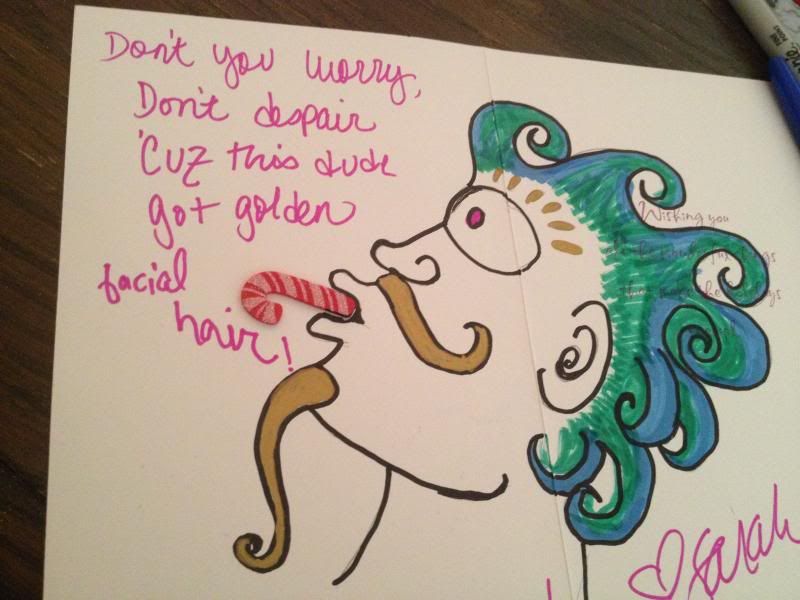 Don't you worry,
Don't despair
'Cuz this dude
got golden
facial
hair!
Wishing you
♡ Sarah